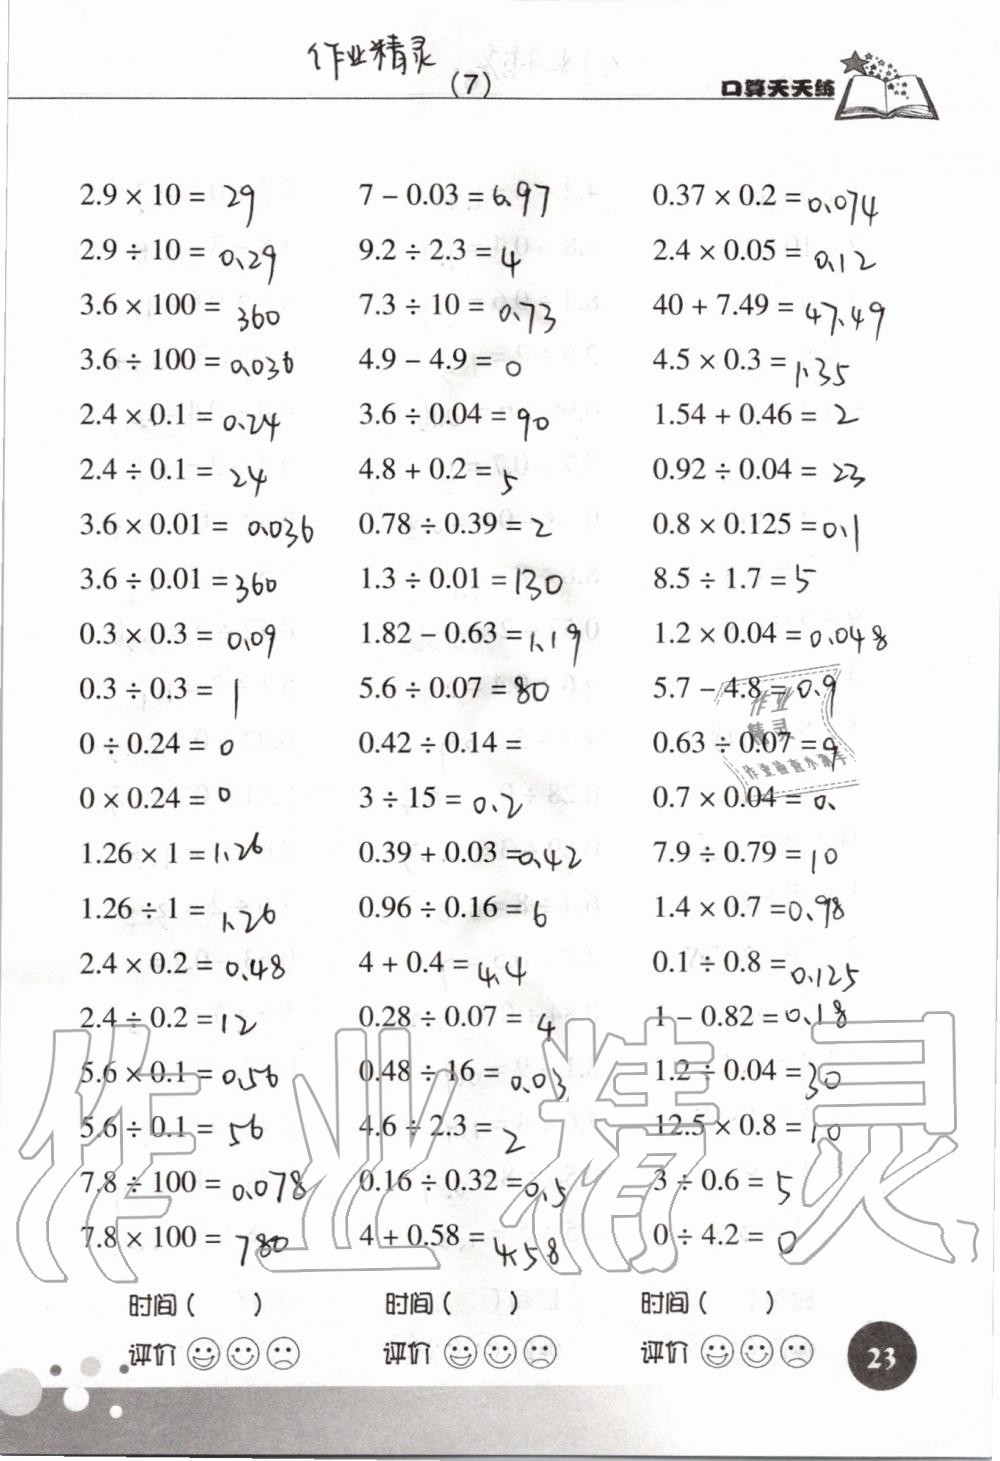 作业精灵
(7)
口算天天练
2.9 × 10 = 29
7 − 0.03 = 6.97
0.37 × 0.2 = 0.074
2.9 ÷ 10 = 0.29
9.2 ÷ 2.3 = 4
2.4 × 0.05 = 0.12
3.6 × 100 = 360
7.3 ÷ 10 = 0.73
40 + 7.49 = 47.49
3.6 ÷ 100 = 0.036
4.9 − 4.9 = 0
4.5 × 0.3 = 1.35
2.4 × 0.1 = 0.24
3.6 ÷ 0.04 = 90
1.54 + 0.46 = 2
2.4 ÷ 0.1 = 24
4.8 + 0.2 = 5
0.92 ÷ 0.04 = 23
3.6 × 0.01 = 0.036
0.78 ÷ 0.39 = 2
0.8 × 0.125 = 0.1
3.6 ÷ 0.01 = 360
1.3 ÷ 0.01 = 130
8.5 ÷ 1.7 = 5
0.3 × 0.3 = 0.09
1.82 − 0.63 = 1.19
1.2 × 0.04 = 0.048
0.3 ÷ 0.3 = 1
5.6 ÷ 0.07 = 80
5.7 − 4.8 = 0.9
0 ÷ 0.24 = 0
0.42 ÷ 0.14 =
0.63 ÷ 0.07 = 9
0 × 0.24 = 0
3 ÷ 15 = 0.2
0.7 × 0.04 = 0.
1.26 × 1 = 1.26
0.39 + 0.03 = 0.42
7.9 ÷ 0.79 = 10
1.26 ÷ 1 = 1.26
0.96 ÷ 0.16 = 6
1.4 × 0.7 = 0.98
2.4 × 0.2 = 0.48
4 + 0.4 = 4.4
0.1 ÷ 0.8 = 0.125
2.4 ÷ 0.2 = 12
0.28 ÷ 0.07 = 4
1 − 0.82 = 0.18
5.6 × 0.1 = 0.56
0.48 ÷ 16 = 0.03
1.2 ÷ 0.04 = 30
5.6 ÷ 0.1 = 56
4.6 ÷ 2.3 = 2
12.5 × 0.8 = 10
7.8 ÷ 100 = 0.078
0.16 ÷ 0.32 = 0.5
3 ÷ 0.6 = 5
7.8 × 100 = 780
4 + 0.58 = 4.58
0 ÷ 4.2 = 0
作业
精灵
作业检查小助手
作业精灵
时间(　　)
时间(　　)
时间(　　)
评价
评价
评价
23